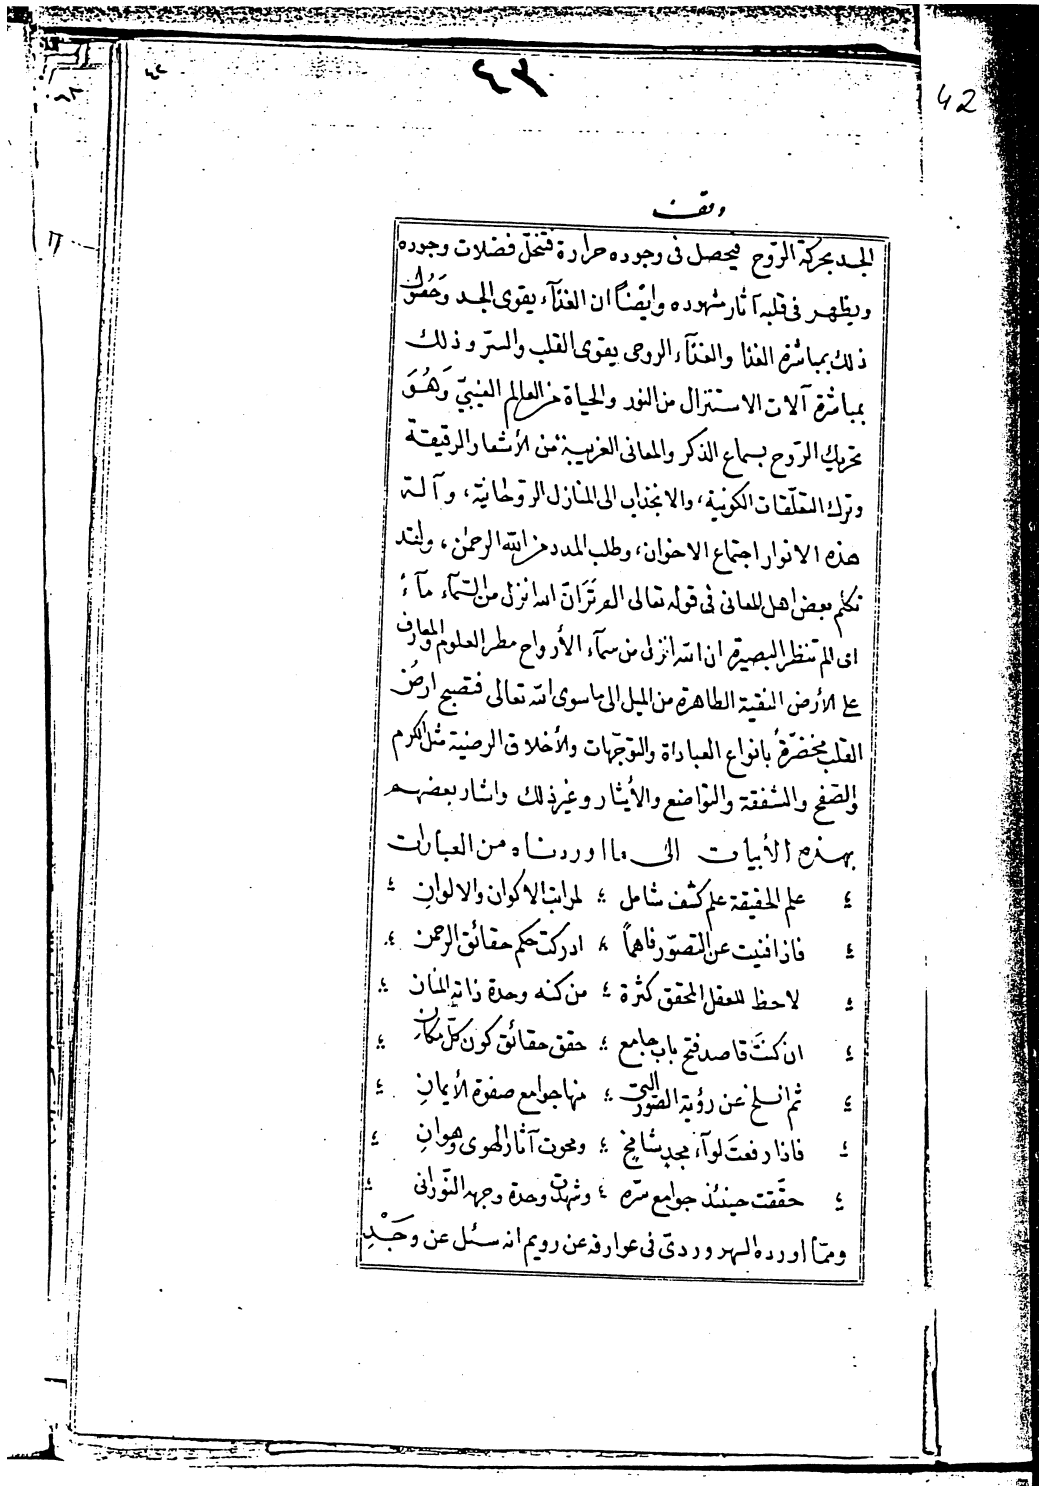 ٤٢
٤٣
42
وقف
الجسد بحركة الرّوح فيحصل فى وجوده حرارة فتخلّ فضلات وجوده
ويظهر فى قلبه آثار شهوده وايضاً ان الغذآء يقوى الجسد وحقوق
ذلك بمباشرة الغذا والغذآء الروحى يقوى القلب والسر وذلك
بمباشرة آلات الاستنزال من النور والحياة من العالم الغيبىّ وَهُوَ
تحريك الرّوح بسماع الذكر والمعانى الغريبة من الأشعار الرقيقة
وترك التعلّقات الكونية، والانجذاب الى المنازل الروحانية، وآلة
هذه الانوار اجتماع الاخوان، وطلب المدد من الله الرحمن، ولقد
تكلم بعض اهل المعانى فى قوله تعالى الم تَرَ انّ الله انزل من السّمآء مآءً
اى الم تنظر البصيرة ان الله انزل من سمآء الأرواح مطر العلوم والمعارف
على الأرض النقية الطاهرة من الميل الى ما سوى الله تعالى فتصبح ارضُ
القلب مخضرّةً بانواع العباداة والتوجّهات والأخلاق الرضية مثل الكرم
والصّفح والشفقة والتواضع والأيثار وغير ذلك واشار بعضهم
بهذه الأبيات الى ما اوردناه من العبارات
علم الحقيقة علم كشف شامل ؛ لمراتب الاكوان والالوانِ
فاذا فنيت عن التصوّر فاهماً ؛ ادركت حكم حقائق الرحمن
لاحظ للعقل المحقق كثرة ؛ من كنه وحدة ذاته المنان
ان كنتَ قاصد فتح باب جامع ؛ حقق حقائق كون كلّ مكانِ
ثم انسلخ عن رؤية الصور التى ؛ منها جوامع صفوة الأيمانِ
فاذا رفعتَ لوآء مجدٍ شامخٍ ؛ ومحوت آثار الهوى وهوانِ
حقّقت حينئذ جوامع سرّه ؛ وشهدت وحدة وجهه النّورانى
وممّا اورده السهروردىّ فى عوارفه عن رويم انه سئل عن وَجْدِ